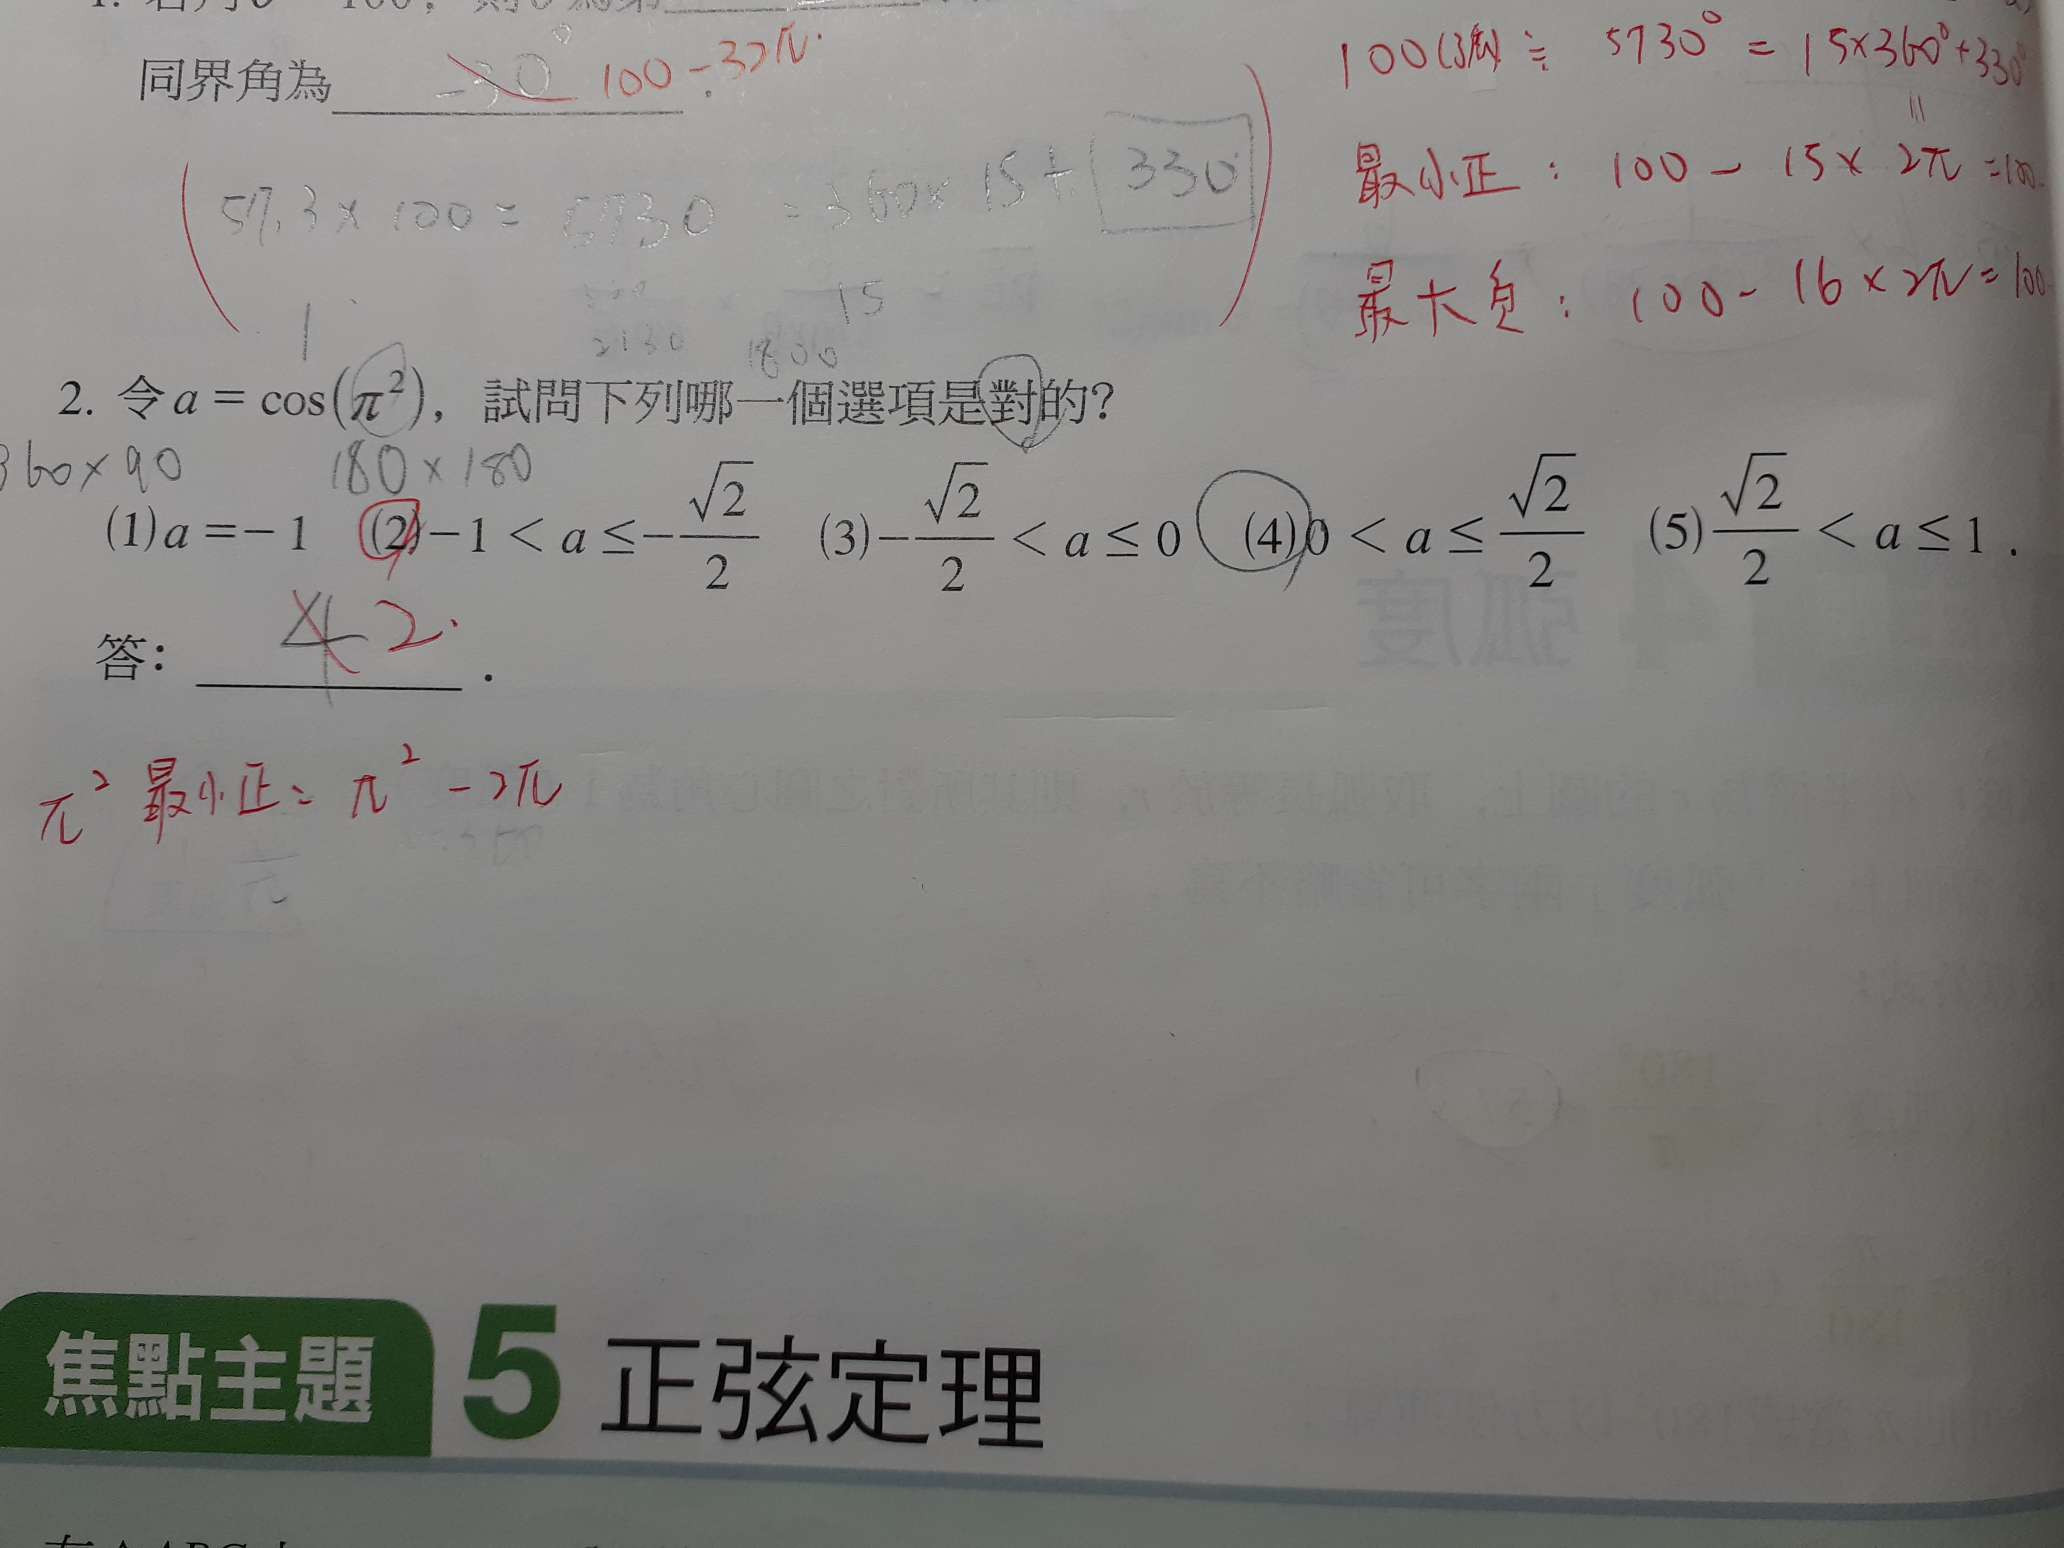 同界角為 -30° 100-32π.
100(弧) ≒ 5730° = 15×360°+330°
57.3×100 = 5730 = 360×15+ 330
最小正: 100 - 15 × 2π =100
最大負: 100 - 16 × 2π =100
15
2130 1800
1
2. 令a = cos(π²), 試問下列哪一個選項是對的?
360×90 180×180
(1)a =- 1 (2)-1 < a ≤-√2/2 (3)-√2/2 < a ≤ 0 (4)0 < a ≤ √2/2 (5)√2/2 < a ≤ 1 .
答: 4 2. .
π² 最小正= π² - 2π
焦點主題 5 正弦定理